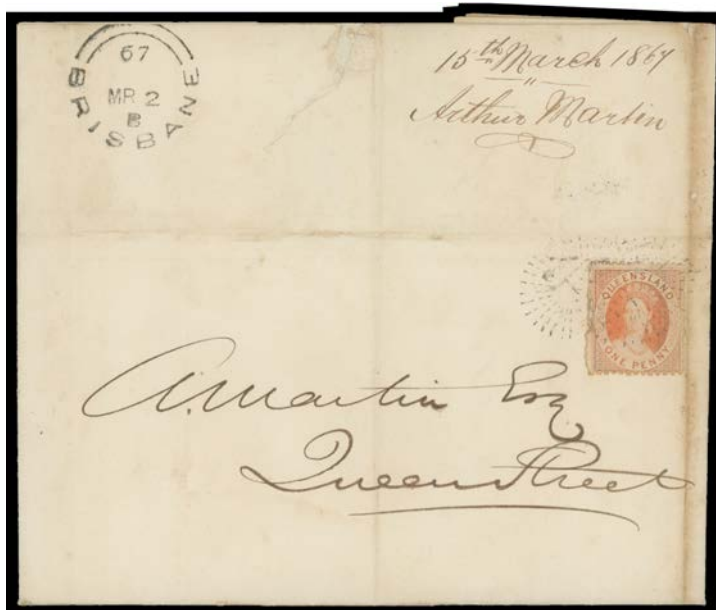 67
MR 2
B
BRISBANE
15th March 1867
Arthur Martin
QUEENSLAND
ONE PENNY
A. Martin Esq
Queen Street